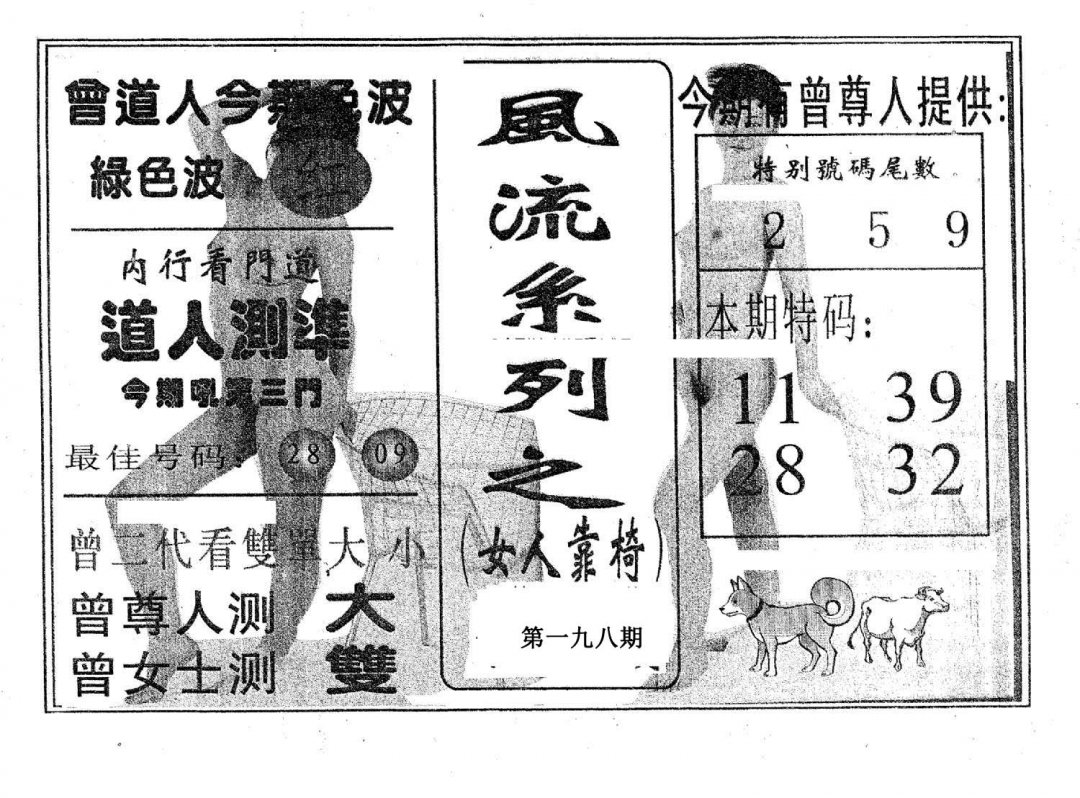 曾道人今期色波
綠色波 红
内行看門道
道人測準
今期吼尾三門
最佳号码: 28 09
曾二代看雙單大小
曾尊人测 大
曾女士测 雙
風流系列之
(女人靠椅)
第一九八期
今期有曾尊人提供:
特别號碼尾數
2 5 9
本期特码:
11 39
28 32